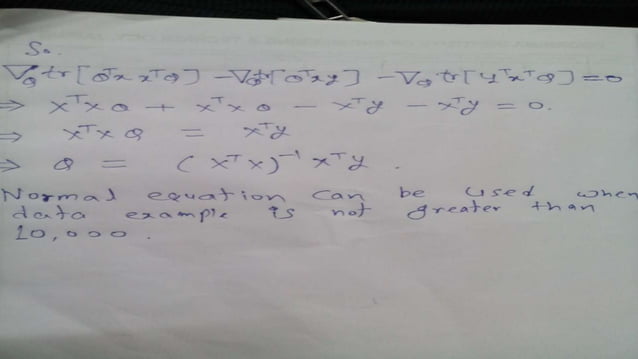 So.
∇_θ tr[θᵀx xᵀθ] - ∇_θ tr[θᵀxy] - ∇_θ tr[yᵀxᵀθ] = 0
⇒ xᵀx θ + xᵀx θ - xᵀy - xᵀy = 0.
⇒ xᵀx θ = xᵀy
⇒ θ = (xᵀx)⁻¹ xᵀy .
Normal equation can be used when
data example is not greater than
10,000 .